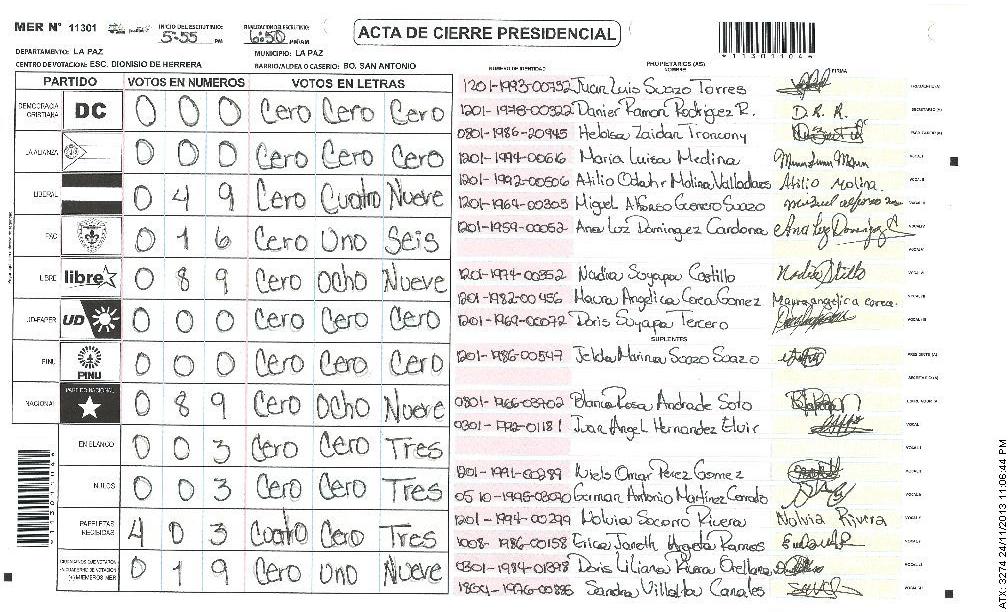 MER Nº 11301
INICIO DEL ESCRUTINIO: 5:55 PM
FINALIZACION DEL ESCRUTINIO: 6:50 PM/AM
ACTA DE CIERRE PRESIDENCIAL
*11301104*
DEPARTAMENTO: LA PAZ
MUNICIPIO: LA PAZ
CENTRO DE VOTACION: ESC. DIONISIO DE HERRERA
BARRIO/ALDEA O CASERIO: BO. SAN ANTONIO
PARTIDO VOTOS EN NUMEROS VOTOS EN LETRAS
DEMOCRACIA CRISTIANA DC 0 0 0 Cero Cero Cero
LA ALIANZA 0 0 0 Cero Cero Cero
LIBERAL 0 4 9 Cero Cuatro Nueve
PAC 0 1 6 Cero Uno Seis
LIBRE libre 0 8 9 Cero Ocho Nueve
UD-FAPER UD 0 0 0 Cero Cero Cero
PINU PINU 0 0 0 Cero Cero Cero
NACIONAL PARTIDO NACIONAL 0 8 9 Cero Ocho Nueve
EN BLANCO 0 0 3 Cero Cero Tres
NULOS 0 0 3 Cero Cero Tres
PAPELETAS RECIBIDAS 4 0 3 Cuatro Cero Tres
0 1 9 Cero Uno Nueve
NUMERO DE IDENTIDAD PROPIETARIOS (AS) NOMBRE FIRMA
1201-1993-00752 Juan Luis Suazo Torres PRESIDENTE (A)
1201-1978-00322 Danier Ramon Rodrigez R. D. R. R. SECRETARIO (A)
0801-1986-20945 Heloisa Zaidan Troncony
1201-1994-00616 Maria Luisa Medina VOCAL I
1201-1992-00506 Atilio Odahr Molina Valladares Atilio Molina. VOCAL II
1201-1964-00303 Miguel Alfonso Guerrero Suazo miguel alfonso
1201-1959-00052 Ana Luz Dominguez Cardona Ana Luz Dominguez C
1201-1974-00352 Nadia Suyapa Castillo
1201-1982-00456 Maura Angelica Corea Gomez Maura angelica corea.
1201-1969-00072 Doris Suyapa Tercero
SUPLENTES
1201-1986-00547 Jelda Marina Suazo Suazo PRESIDENTE (A)
SECRETARIO (A)
0801-1966-03702 Blanca Rosa Andrade Soto
0301-1992-01181 Juan Angel Hernandez Elvir
1201-1991-00289 Niels Omar Perez Gomez
0510-1995-03090 German Antonio Martinez Serrato
1201-1994-00299 Nolvia Socorro Rivera Nolvia Rivera
1008-1986-00158 Erica Janeth Argeta Ramos
0301-1984-01898 Doris Liliana Rivera Orellana
1804-1976-00885 Sandra Villalta Canales
*11301104*
ATX 3274 24/11/2013 11:06:44 PM